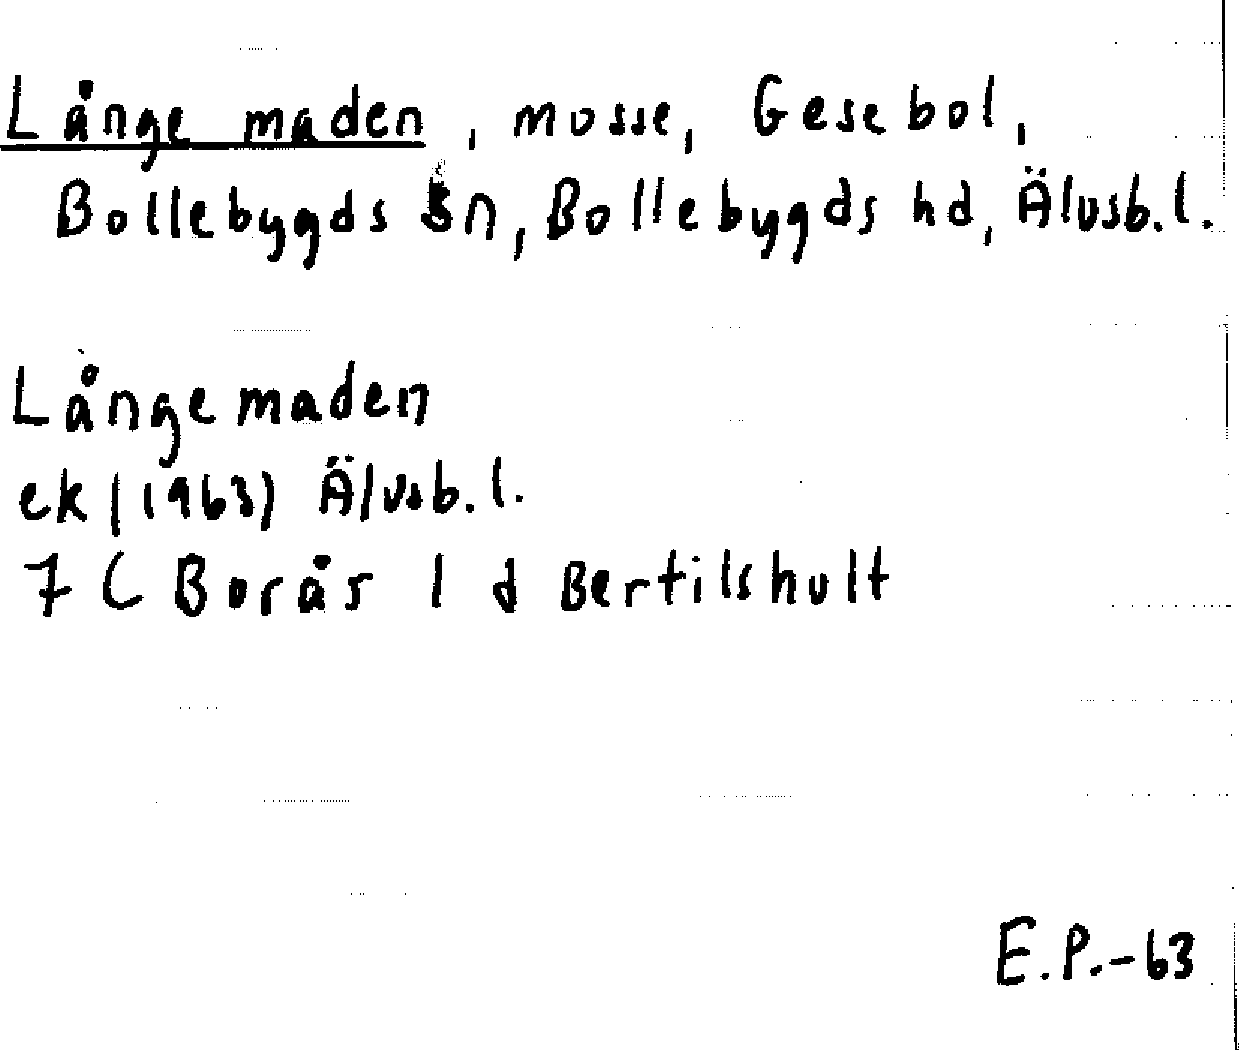 Långe maden, mosse, Gesebol,
Bollebygds sn, Bollebygds hd, Älvsb.l.
Långemaden
ek (1963) Älvsb.l.
7 C Borås 1 d Bertilshult
E.P.-63